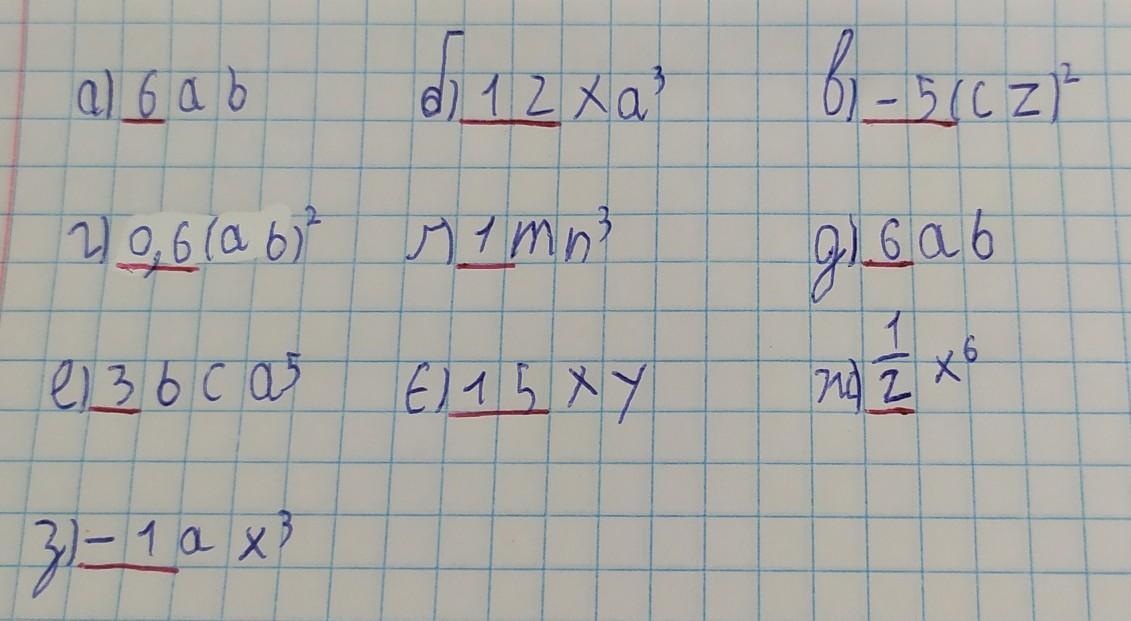 а) 6 a b б) 12 x a³ в) -5(c z)²
г) 0,6(a b)² ґ) 1 m n³ д) 6 a b
е) 3 b c a⁵ є) 15 x y ж) 1/2 x⁶
з) -1 a x³